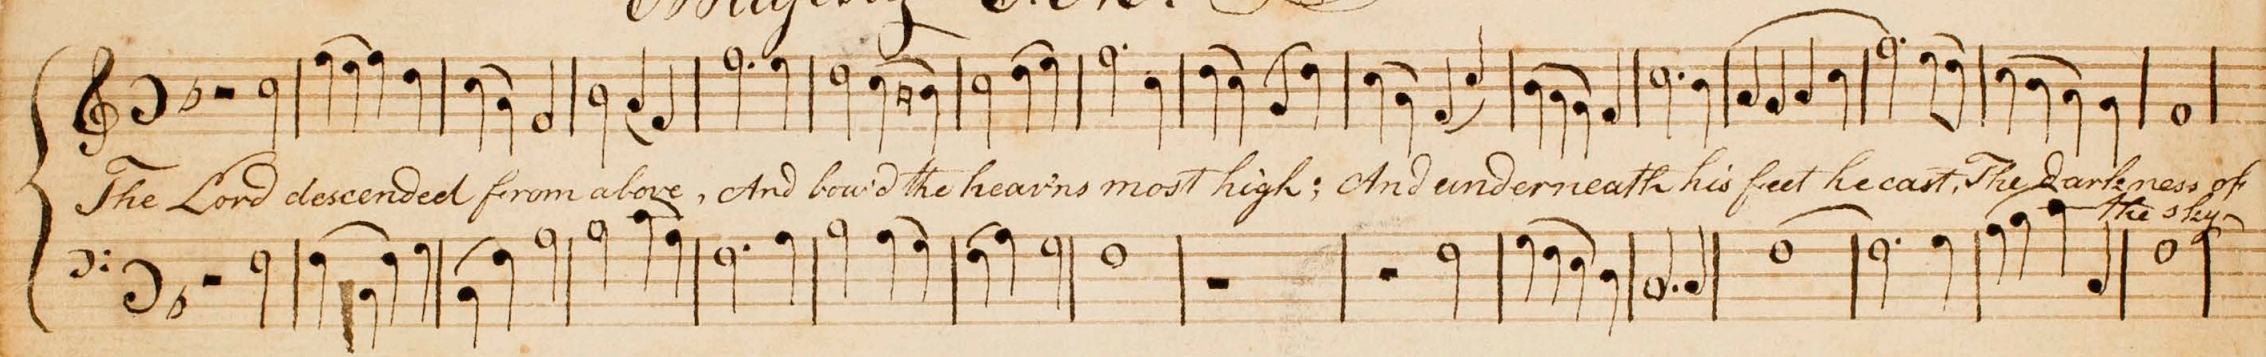 The Lord descended from above, And bow'd the heav'ns most high; And underneath his feet he cast, The darkness of
the sky